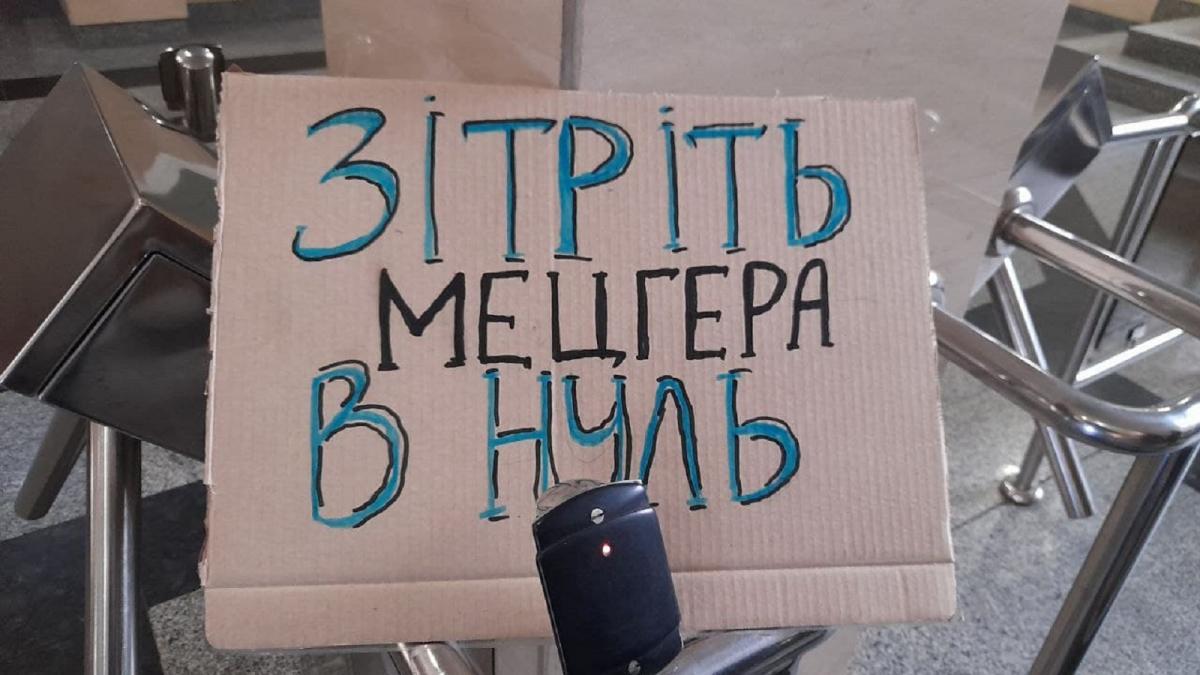 ЗІТРІТЬ
МЕЦГЕРА
В НУЛЬ